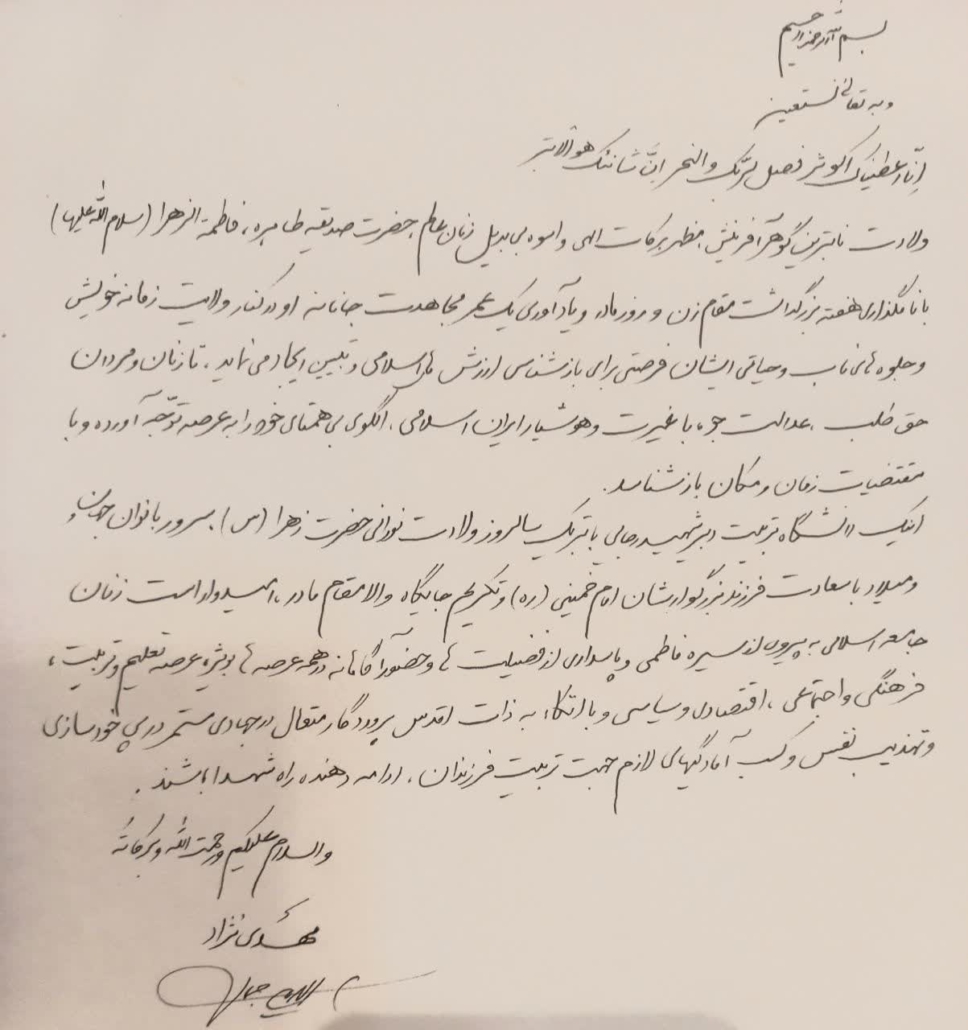 بسم الله الرحمن الرحیم
و به تعالی نستعین
إنّا اعطیناک الکوثر فصل لربّک والنحر إنّ شانئک هو الابتر
ولادت نابترین گوهر آفرینش، مظهر برکات الهی و اسوه بی بدیل زنان عالم، حضرت صدیقه طاهره، فاطمة الزهرا (سلام الله علیها)
با نامگذاری هفته بزرگداشت مقام زن و روز مادر و یادآوری یک عمر مجاهدت جانانه او در کنار ولایت زمانه خویش
و جلوه های ناب و حیاتی ایشان فرصتی برای بازشناسی ارزش های اسلامی و تبیین ایجاد می نماید، تا زنان و مردان
حق طلب، عدالت جو، با غیرت و هوشیار ایران اسلامی، الگوی بی همتای خود را به عرصه توجّه آورده و با
مقتضیات زمان و مکان بازشناسند.
اینک دانشگاه تربیت دبیر شهید رجایی با تبریک سالروز ولادت نورانی حضرت زهرا (س)، سرور بانوان جهان و
و میلاد با سعادت فرزند بزرگوارشان امام خمینی (ره) و تکریم جایگاه والا مقام مادر، امیدوار است زنان
جامعه اسلامی به پیروی از سیره فاطمی و پاسداری از فضیلت ها و حضور آگاهانه در همه عرصه ها بویژه عرصه تعلیم و تربیت،
فرهنگی و اجتماعی، اقتصادی و سیاسی و با اتکاء به ذات اقدس پروردگار متعال در جهادی مستمر در پی خودسازی
و تهذیب نفس و کسب آمادگیهای لازم جهت تربیت فرزندان، ادامه دهنده راه شهدا باشند.
والسلام علیکم و رحمت الله و برکاته
مهدی نژاد